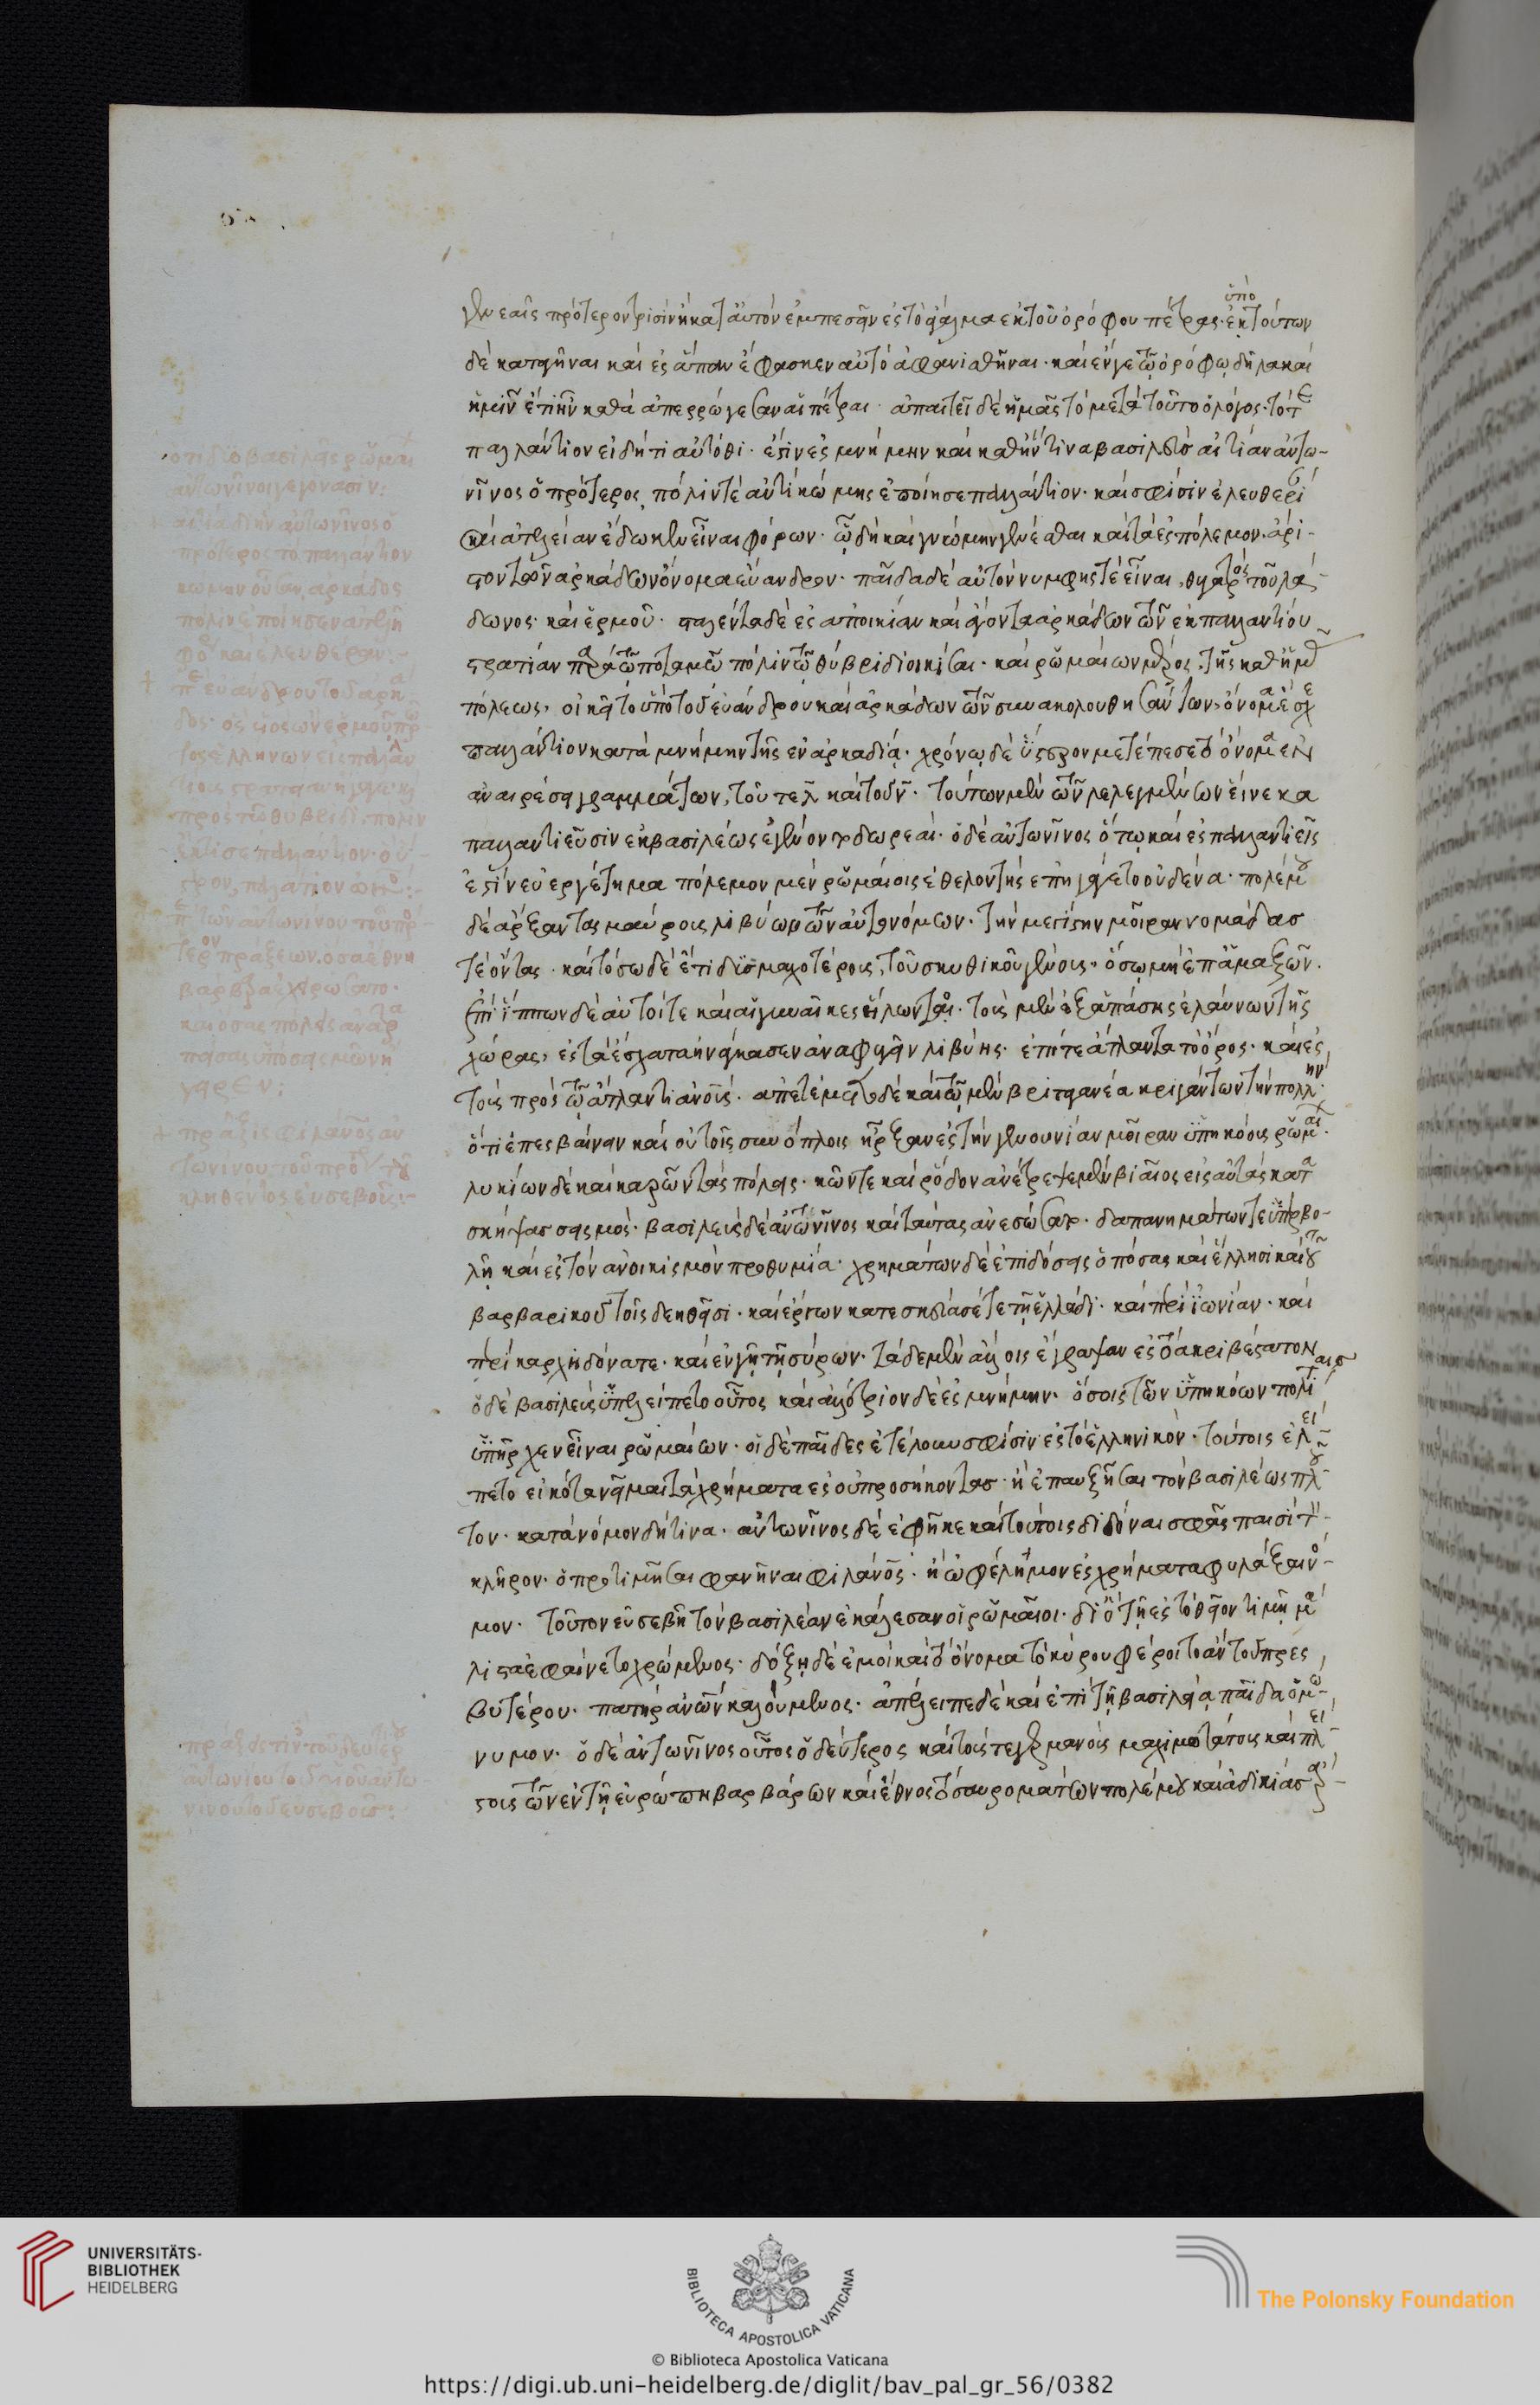 γενεαῖς πρότερον τρισὶν ἢ κατ' αὐτὸν ἐμπεσεῖν ἐς τὸ ἄγαλμα ἐκ τοῦ ὀρόφου πέτρας· ὑπὸ τούτων
δὲ κατεαγῆναι καὶ ἐς ἅπαν ἔφασκεν αὐτὸ ἀφανισθῆναι· καὶ ἔν γε τῷ ὀρόφῳ δῆλα καὶ
ἡμῖν ἔτι ἦν καθὰ ἀπερρώγεσαν αἱ πέτραι· ἀπαιτεῖ δὲ ἡμᾶς τὸ μετὰ τοῦτο ὁ λόγος τό τε
παλλάντιον εἰ δή τι αὐτόθι ἐστὶν ἐς μνήμην καὶ καθ' ἥντινα βασιλεὺς αἰτίαν ἀντω-
νῖνος ὁ πρότερος πόλιν τὲ ἀντὶ κώμης ἐποίησε παλλάντιον· καὶ σφίσιν ἐλευθερί
καὶ ἀτέλειαν ἔδωκεν εἶναι φόρων· ὧ δὴ καὶ γνώμην γενέσθαι καὶ τὰ ἐς πόλεμον ἄρι-
στον τῶν ἀρκάδων ὄνομα εὔανδρον· παῖδα δὲ αὐτὸν νύμφης τὲ εἶναι, θυγατρὸς τοῦ λά-
δωνος· καὶ ἑρμοῦ· σταλέντα δὲ ἐς ἀποικίαν καὶ ἄγοντα ἀρκάδων τῶν ἐκ παλλαντίου
στρατιὰν παρὰ τῶ ποταμῶ πόλιν τῶ θύβριδι οἰκίσαι· καὶ ῥωμαίων μέρος τῆς καθ' ἡμᾶ
πόλεως, ὃ ᾠκεῖτο ὑπὸ τοῦ εὐάνδρου καὶ ἀρκάδων τῶν συνακολουθησάντων, ὄνομα ἔσχε
παλλάντιον κατὰ μνήμην τῆς ἐν ἀρκαδία· χρόνω δὲ ὕστερον μετέπεσε τὸ ὄνομα ἐπὶ
ἀναιρέσει γραμμάτων, τοῦ τε λ καὶ τοῦ ν· τούτων μὲν τῶν λελεγμένων εἵνεκα
παλλαντιεῦσιν ἐκ βασιλέως ἐγένοντο δωρεαί· ὁ δὲ ἀντωνῖνος ὅτω καὶ ἐς παλλαντιεῖς
ἐστὶν εὐεργέτημα πόλεμον μὲν ῥωμαίοις ἐθελοντὴς ἐπηγάγετο οὐδένα· πολέμου
δὲ ἄρξαντας μαύρους λιβύων τῶν αὐτονόμων τὴν μεγίστην μοῖραν νομάδας
τὲ ὄντας· καὶ τόσω δὲ ἔτι δυσμαχοτέρους τοῦ σκυθικοῦ γένους· ὅσω μὴ ἐπ' ἁμαξῶν
ἐπὶ ἵππων δὲ αὐτοί τε καὶ αἱ γυναῖκες ἠλῶντο· τοὺς μὲν ἐξ ἁπάσης ἐλαύνων τῆς
χώρας, ἐς τὰ ἔσχατα ἠνάγκασεν ἀναφυγεῖν λιβύης· ἐπί τε ἄτλαντα τὸ ὄρος· καὶ ἐς
τοὺς πρὸς τῶ ἄτλαντι ἀνους· ἀπετέμετο δὲ καὶ τῶν ἐν βριττανία βριγάντων τὴν πολλὴν
ὅτι ἐπεσβαίνειν καὶ οὗτοι σὺν ὅπλοις ἦρξαν ἐς τὴν γενουνίαν μοῖραν ὑπηκόους ῥωμαί
λυκίων δὲ καὶ καρῶν τὰς πόλεις· κῶν τε καὶ ῥόδον ἀνέτρεψε μὲν βίαιος εἰς αὐτὰς κατα
σκήψας σεισμός· βασιλεὺς δὲ ἀντωνῖνος καὶ ταύτας ἀνεσώσατο· δαπανημάτων τε ὑπερβο-
λῆ καὶ ἐς τὸν ἀνοικισμὸν προθυμία· χρημάτων δὲ ἐπιδόσεις ὁπόσας καὶ ἕλλησι καὶ τοῦ
βαρβαρικοῦ τοῖς δεηθεῖσι· καὶ ἔργων κατασκευὰς ἔν τε τῆ ἑλλάδι· καὶ περὶ ἰωνίαν· καὶ
περὶ καρχηδόνα τε· καὶ ἐν γῆ τῆ σύρων· τάδε μὲν ἄλλοις ἔγραψαν ἐς τὸ ἀκριβέστατον
ὁ δὲ βασιλεὺς ὑπελείπετο οὗτος καὶ ἀλλότριον δὲ ἐς μνήμην· ὅσοις τῶν ὑπηκόων πολίταις
ὑπῆρχεν εἶναι ῥωμαίων· οἱ δὲ παῖδες ἐτέλουν σφίσιν ἐς τὸ ἑλληνικόν· τούτοις ἐλεί-
πετο εἰ κατανεῖμαι τὰ χρήματα ἐς οὐ προσήκοντας· ἢ ἐπαυξῆσαι τὸν βασιλέως πλοῦ-
τον· κατὰ νόμον δή τινα· ἀντωνῖνος δὲ ἐφῆκε καὶ τούτοις διδόναι σφᾶς παισὶ τὸν
κλῆρον· ὁ προτιμῆσαι φανῆναι φιλάνος· ἢ ὠφέλημον ἐς χρήματα φυλάξαι νό-
μον· τοῦτον εὐσεβῆ τὸν βασιλέαν ἐκάλεσαν οἱ ῥωμαῖοι· διότι τῆ ἐς τὸ θεῖον τιμῆ μά
λιστα ἐφαίνετο χρώμενος· δόξη δὲ ἐμοὶ καὶ τὸ ὄνομα τὸ κύρου φέροιτο ἂν τοῦ πρεσ
βυτέρου· πατὴρ ἀνων καλούμενος· ἀπέλειπε δὲ καὶ ἐπὶ τῆ βασιλεία παῖδα ὁμώ-
νυμον· ὁ δὲ ἀντωνῖνος οὗτος ὁ δεύτερος καὶ τούς τε γερμανοὺς μαχιμωτάτους καὶ πλεί-
στους τῶν ἐν τῆ εὐρώπη βαρβάρων καὶ ἔθνος τὸ σαυροματῶν πολέμου καὶ ἀδικίας
ὅτι δύο βασιλεῖς ῥωμαί
ἀντωνῖνοι γεγόνασιν:
ἀντωνῖνος ὁ
πρότερος τὸ παλλάντιον
κώμην οὖσαν ἀρκάδος
πόλιν ἐποίησεν ἀτελῆ
φο καὶ ἐλευθέραν:-
π εὐάνδρου τοῦ ἀρκά
δος· ὃς υἱὸς ὢν ἑρμοῦ
πρὸς τῶ θύβριδι, πόλιν
ἔκτισε παλλάντιον· ὃ ὕ
στερον, παλάτιον
π τῶν ἀντωνίνου τοῦ προ
τέρου πράξεων· ὅσα ἔθνη
καὶ ὅσας πόλεις
πάξεις φιλανος ἀν
τωνίνου τοῦ προ
κληθέντος εὐσεβοῦς:-
UNIVERSITÄTS-
BIBLIOTHEK
HEIDELBERG
BIBLIOTECA APOSTOLICA VATICANA
The Polonsky Foundation
© Biblioteca Apostolica Vaticana
https://digi.ub.uni-heidelberg.de/diglit/bav_pal_gr_56/0382